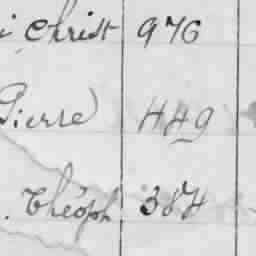 i Christ 976
Pierre 449
. Théoph 384